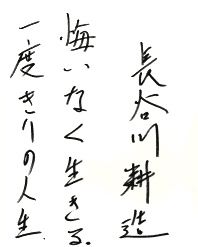 長谷川耕造
悔いなく生きる。
一度きりの人生